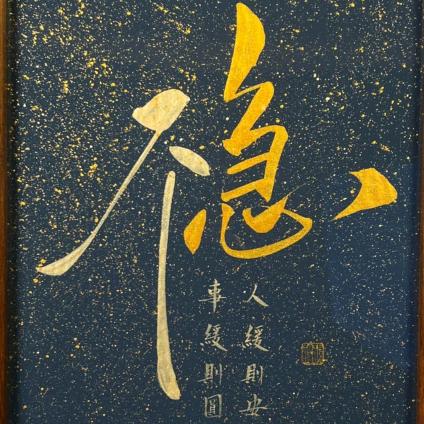 不急
人緩則安
事緩則圓